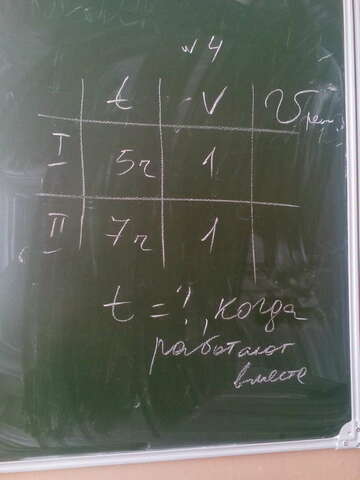 № 4
t V
I 5ч 1
II 7ч 1
t = ?, когда
работают
вместе